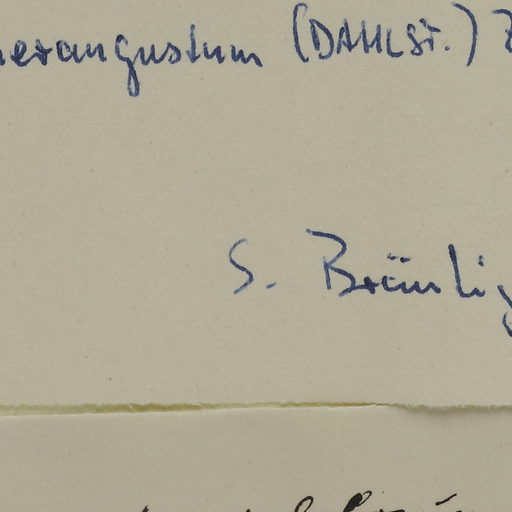 nerangustum (DAHLST.) Z
S. Bräutig